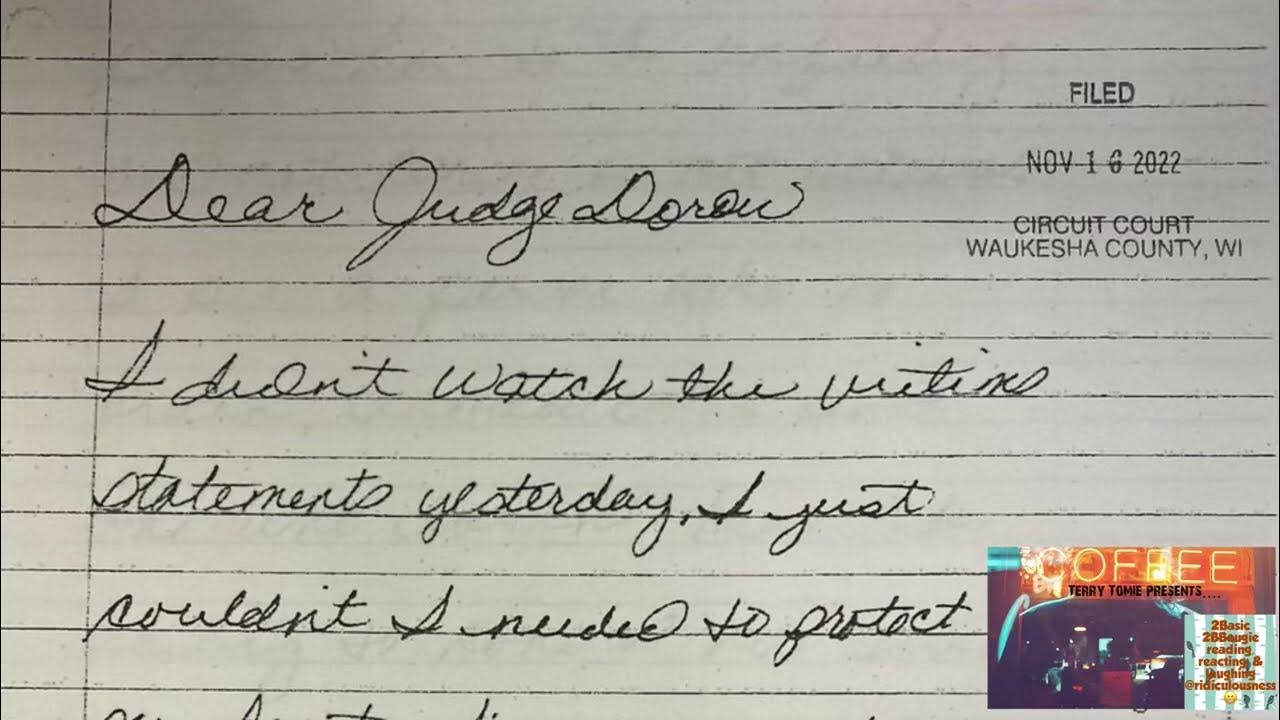 FILED
NOV 16 2022
CIRCUIT COURT
WAUKESHA COUNTY, WI
Dear Judge Dorow
I didn't watch the victims
statements yesterday, I just
couldn't I needed to protect
COFFEE
TERRY TOMIE PRESENTS....
2Basic
2BBougie
reading
reacting &
laughing
@ridiculousness